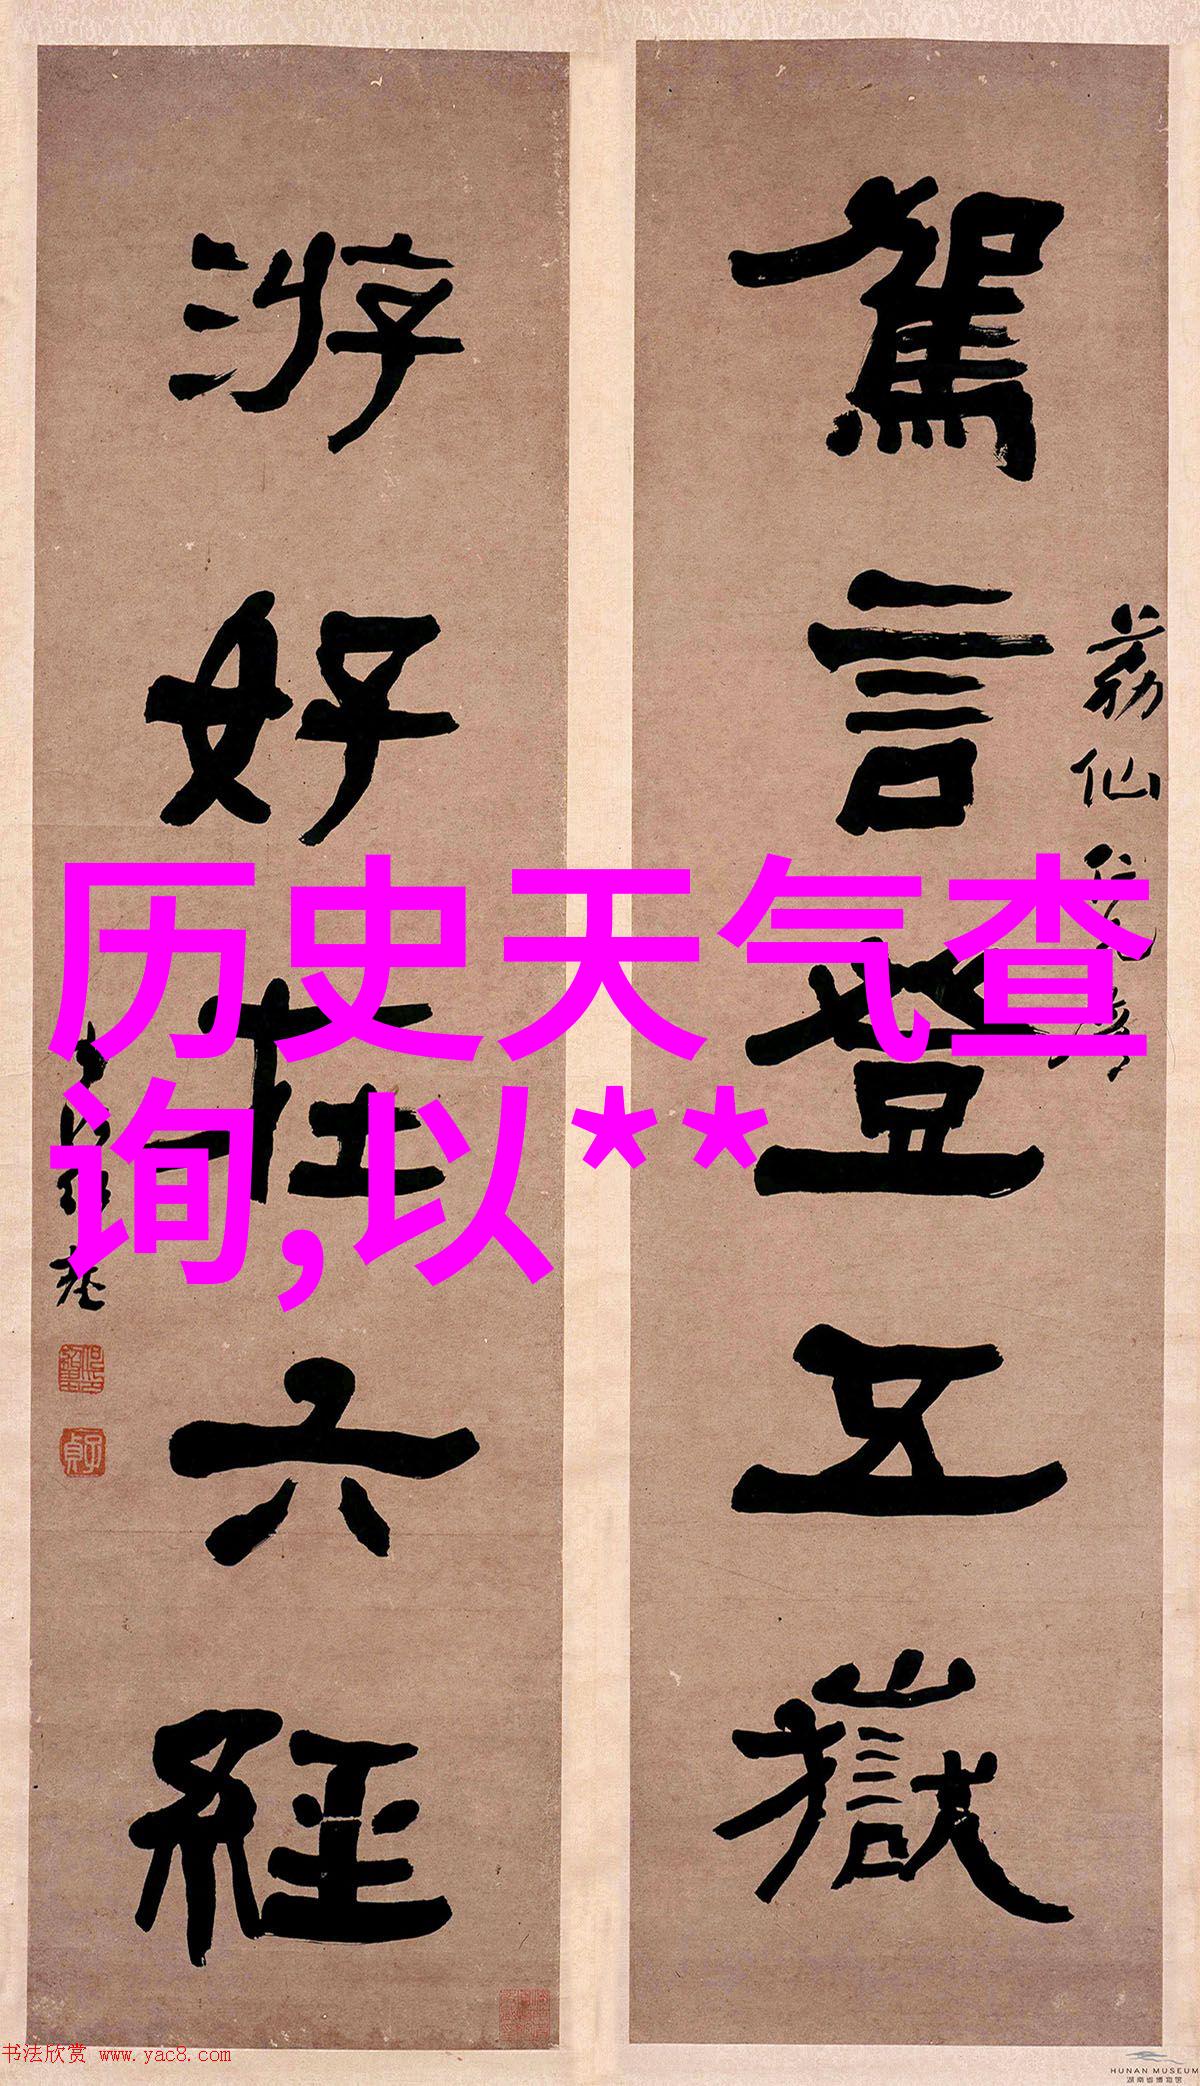 駕言登五嶽
荔仙
游好在六經
子貞
历史天气查
询,以**
书法欣赏 www.yac8.com
HUNAN MUSEUM
湖南省博物馆